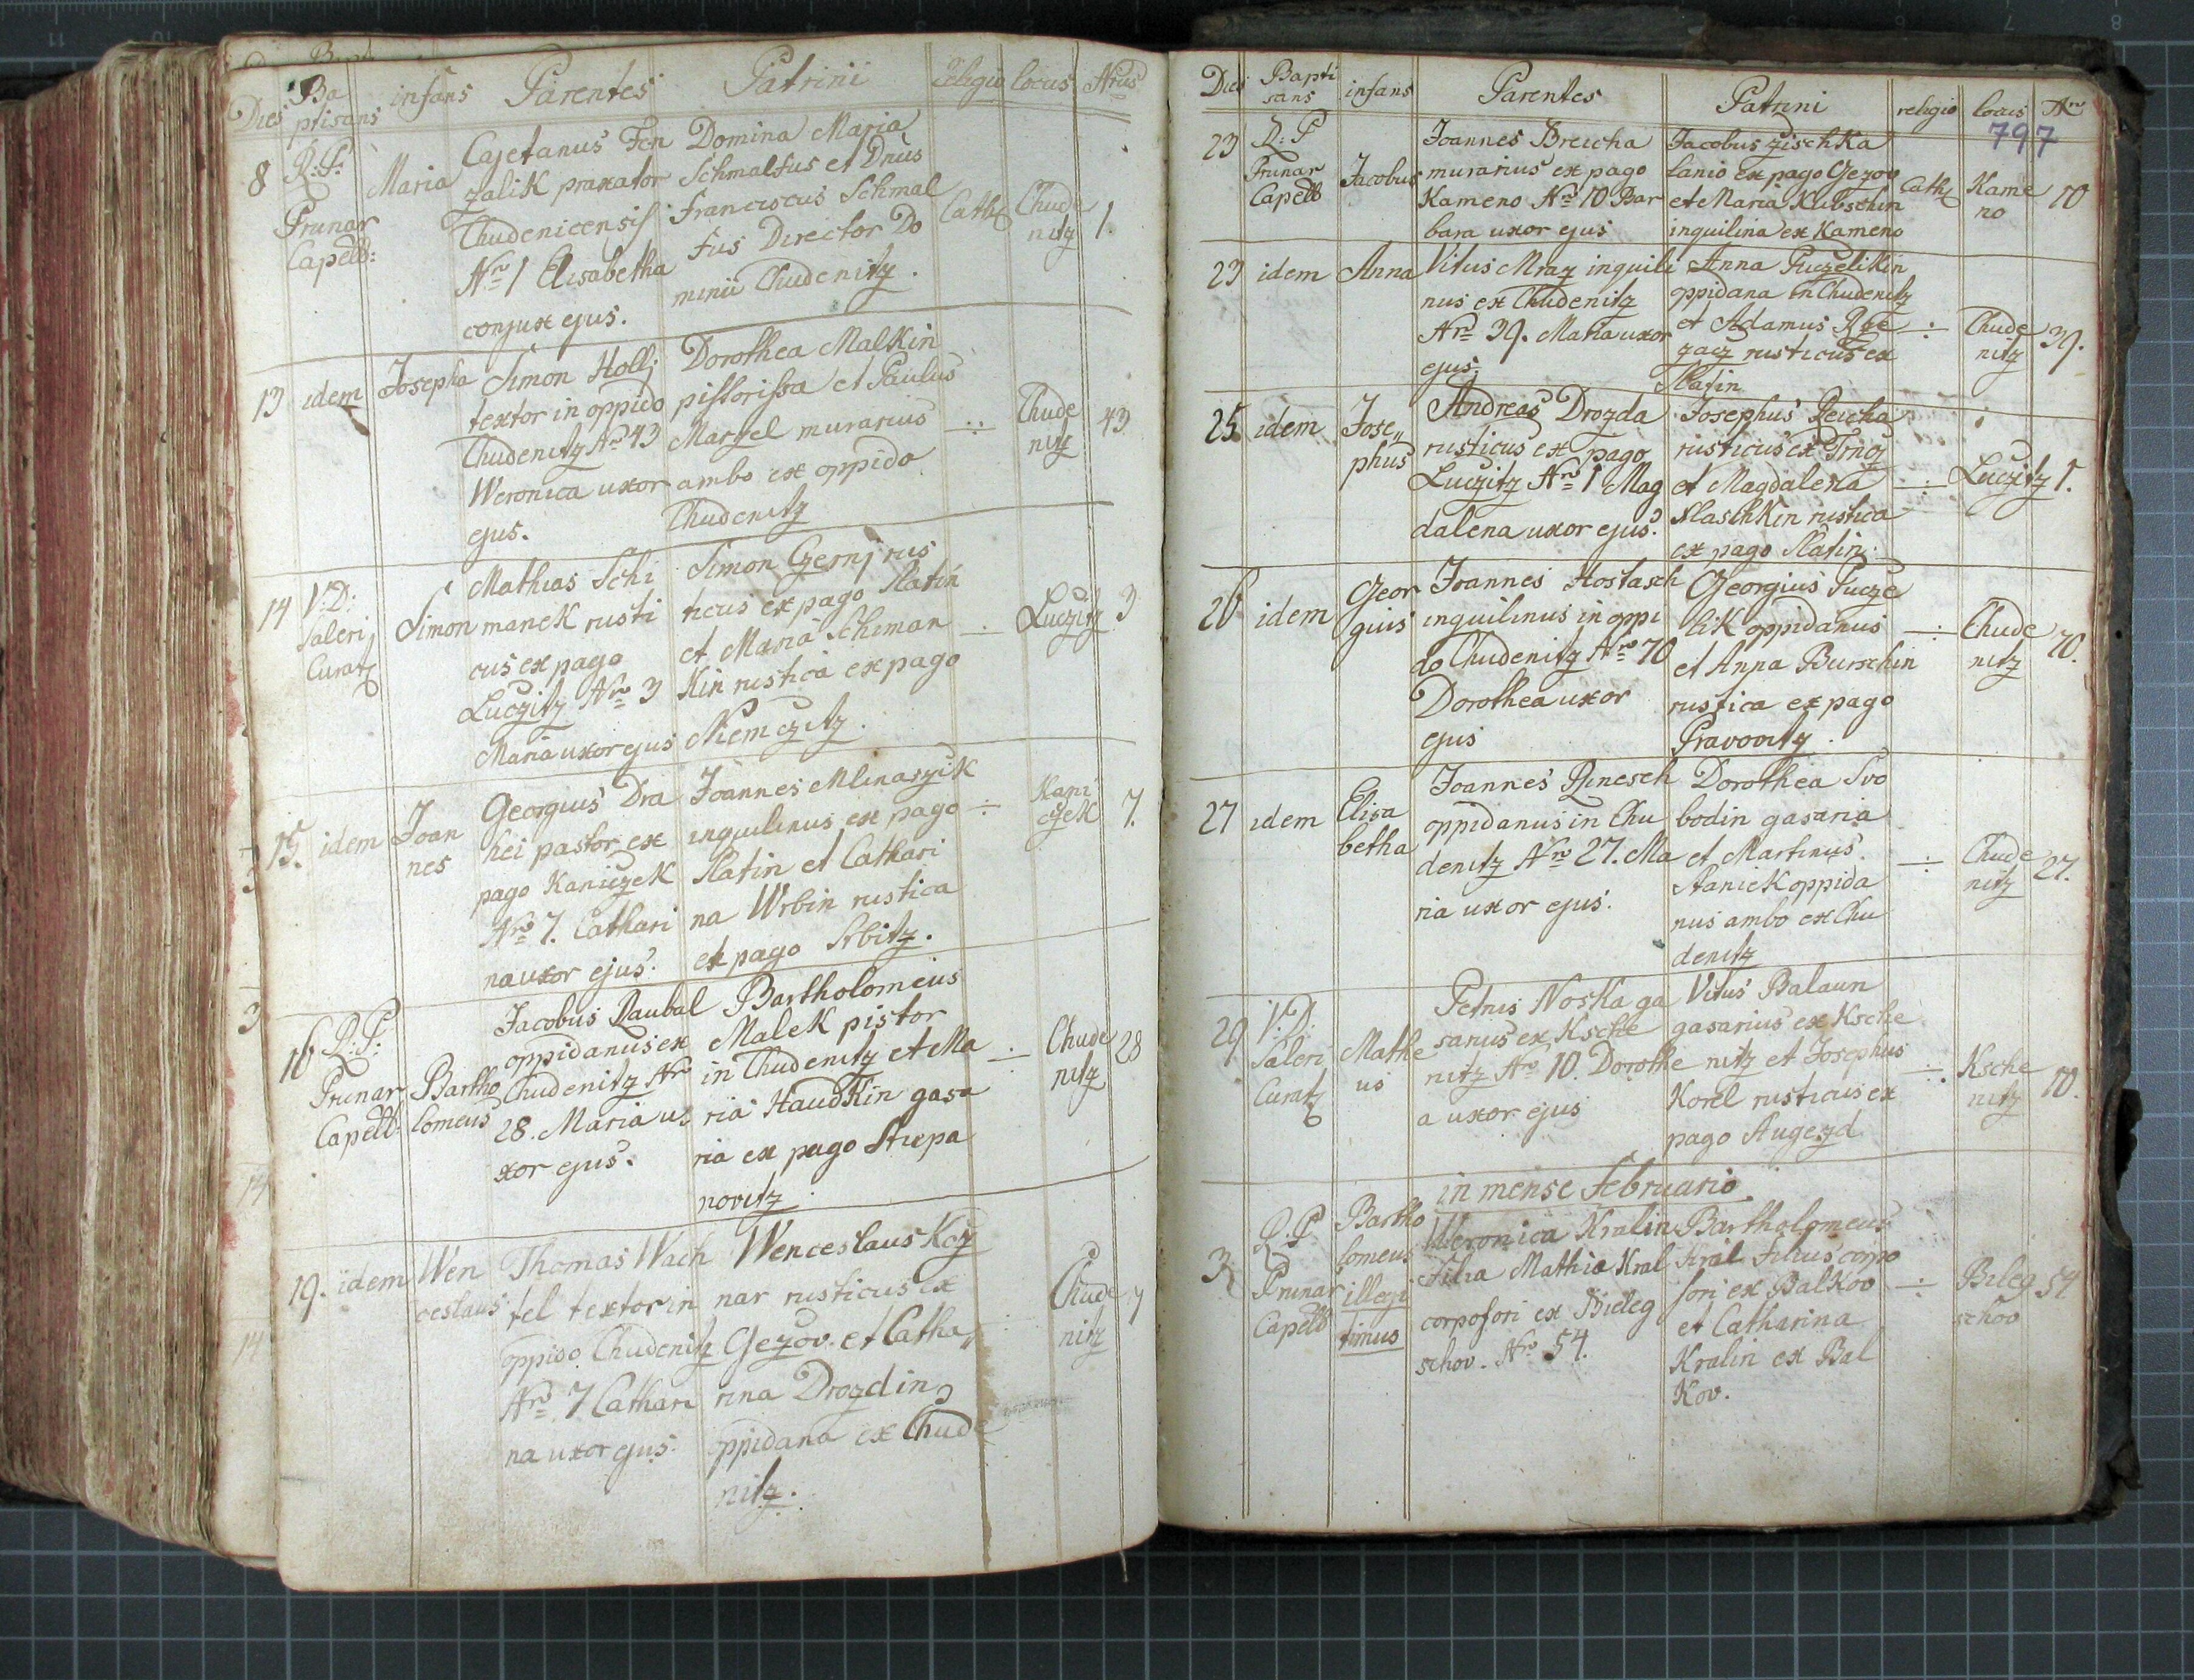 Dies Baptisans infans Parentes Patrini religio locus Nrus
8 R: P: Prunar Capell: Maria
Cajetanus Fen
zalik praxator
Chudenicensis
Nro 1 Elisabetha
conjux ejus.
Domina Maria
Schmalfus et Dnus
Franciscus Schmal
fus Director Do
minii Chudenitz.
Cath Chude
nitz 1.
13 idem Josepha
Simon Hollj
textor in oppido
Chudenitz Nro 43
Weronica uxor
ejus.
Dorothea Malkin
pistorissa et Paulus
Marzel murarius
ambo ex oppido
Chudenitz
Chude
nitz 43
14 V: D: Saleri Curat Simon
Mathias Schi
manek rusti
cus ex pago
Luczitz Nro 3
Maria uxor ejus
Simon Czernj rus
ticus ex pago Slatin
et Maria Schiman
kin rustica ex pago
Niemczitz.
Luczitz 3
15. idem Joan
nes
Georgius Dra
hei pastor ex
pago Kaniczek
Nro 7. Cathari
na uxor ejus.
Joannes Mlinarzik
inquilinus ex pago
Slatin et Cathari
na Wrbin rustica
ex pago Srbitz.
Kani
czek 7.
16 R: P: Prunar Capell: Bartho
lomeus
Jacobus Raubal
oppidanus ex
Chudenitz Nro
28. Maria u
xor ejus.
Bartholomeus
Malek pistor
in Chudenitz et Ma
ria Haudkin gasa
ria ex pago Stiepa
novitz.
Chude
nitz 28
19. idem Wen
ceslaus
Thomas Wach
tel textor in
oppido Chudenitz
Nro 7 Cathari
na uxor ejus.
Wenceslaus Koz
nar rusticus ex
Gezov. et Catha
rina Drozdin
oppidana ex Chude
nitz.
Chude
nitz 7
Dies Baptisans infans Parentes Patrini religio locus Nro
797
23 R: P Prunar Capell Jacobus
Joannes Breicha
murarius ex pago
Kameno Nro 10 Bar
bara uxor ejus
Jacobus Zischka
lanio ex pago Gezov
et Maria Kubschin
inquilina ex Kameno
Cath Kame
no 10
23 idem Anna
Vitus Mraz inquili
nus ex Chudenitz
Nro 39. Maria uxor
ejus.
Anna Puczelikin
oppidana in Chudenitz
et Adamus Rze
zacz rusticus ex
Slatin
Chude
nitz 39.
25. idem Jose
phus
Andreas Drozda
rusticus ex pago
Luczitz Nro 1 Mag
dalena uxor ejus.
Josephus
rusticus ex
et Magdalena
Klaschkin rustica
ex pago Slatin.
Luczitz 1.
26 idem Geor
gius
Joannes Hostasch
inquilinus in oppi
do Chudenitz Nro 70
Dorothea uxor
ejus
Georgius Pucze
lik oppidanus
et Anna Burschin
rustica ex pago
Pravovitz.
Chude
nitz 70.
27 idem Elisa
betha
Joannes
oppidanus in Chu
denitz Nro 27. Ma
ria uxor ejus.
Dorothea Svo
bodin gasaria
et Martinus
Staniek oppida
nus ambo ex Chu
denitz
Chude
nitz 27.
29 V: D. Saleri Curat Mathe
us
Petrus Noska ga
sarius ex Ksche
nitz Nro 10. Dorothe
a uxor ejus
Vitus Balaun
gasarius ex Ksche
nitz et Josephus
Korel rusticus ex
pago Augezd
Ksche
nitz 10.
in mense Februario
3 R: P Prunar Capell
Bartho
lomeus
illegi
timus
Weronica Kralin
filia Mathiæ Kral
corposori ex Bieleg
schov. Nro 54.
Bartholomeus
Kral filius corpo
sori ex Balkov
et Catharina
Kralin ex Bal
kov.
Bileg
schov 54